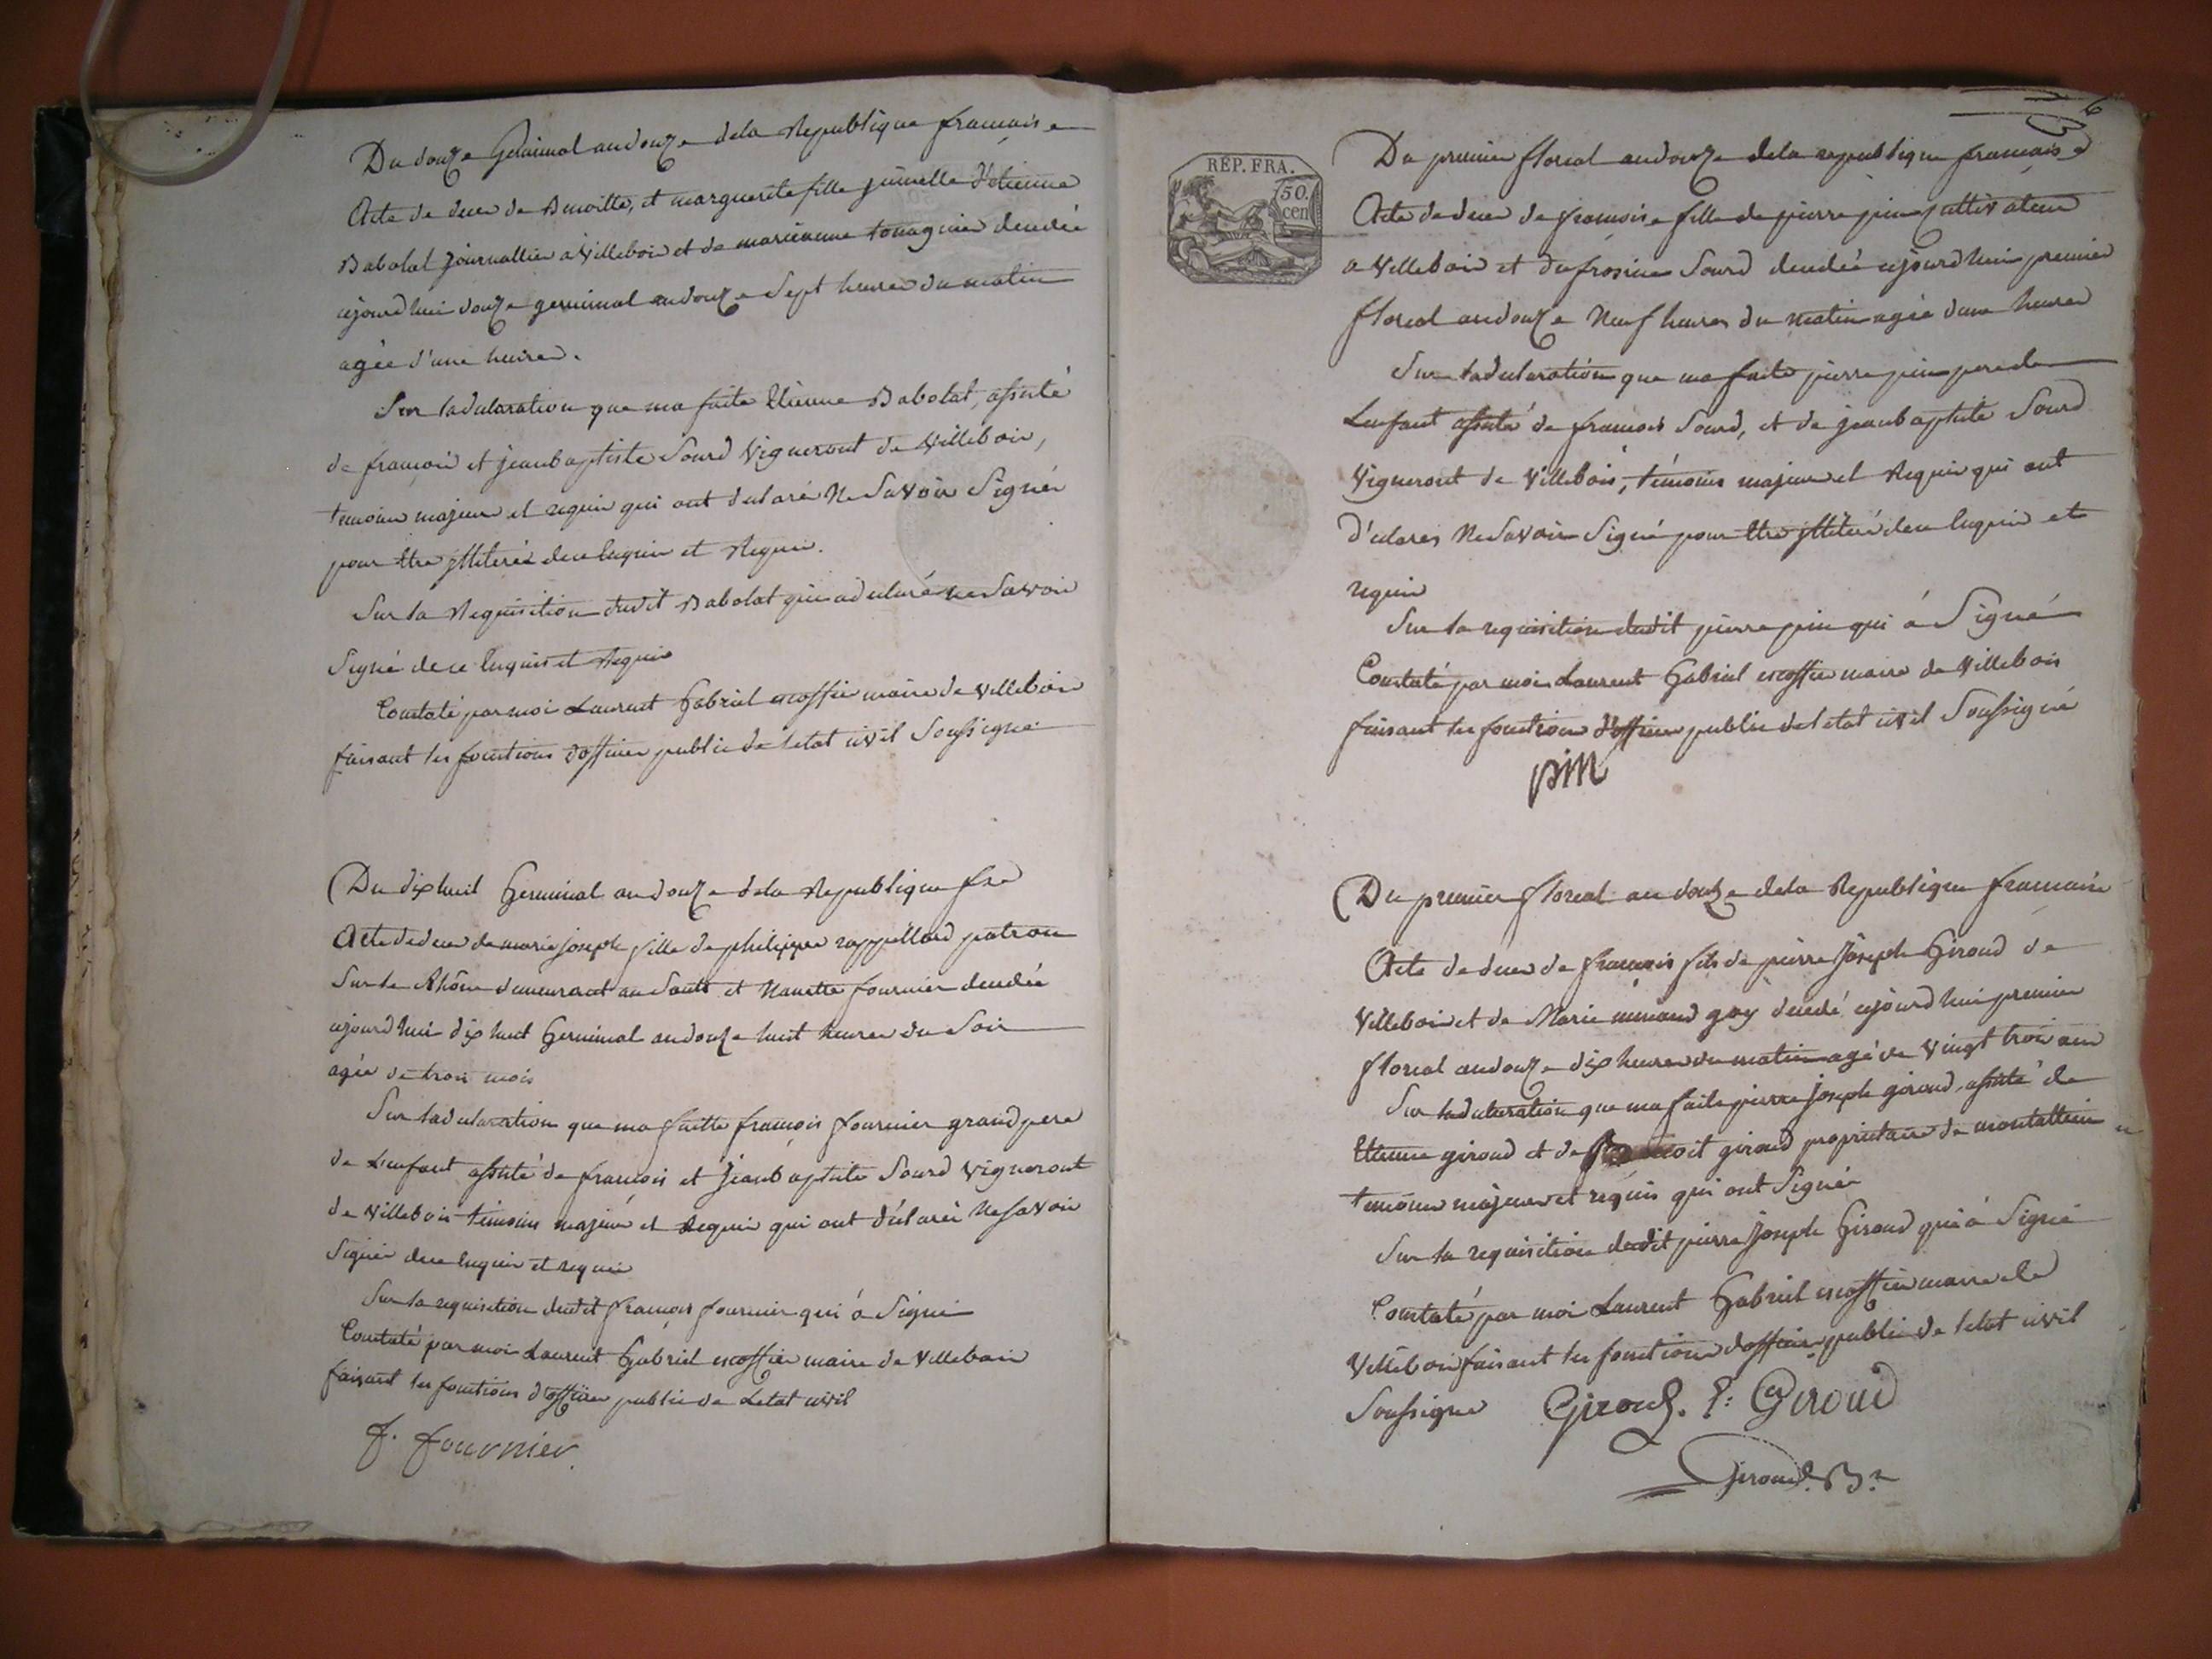 Du douze Germinal an douze dela Republique francaise
Acte de deces de Benoitte, et marguerite fille jumelle d'étienne
Babolat journallier a villebois et de marieanne décedée
ajourdhui douze germinal an douze Sept heures du matin
agée d'une heure.
Sur la declaration que ma faite Etienne Babolat, assisté
de françois et jeanbaptiste Sourd vigneront de villebois,
temoins majeurs et requis qui ont declaré ne Savoir Signer
pour être illiterés de ce enquis et Requis.
Sur la Requisition dudit Babolat qui a declaré ne Savoir
Signé de ce enquis et Requis
Constaté par moi Laurent Gabriel escoffier maire de villebois
faisant les fonctions d'officier public de letat civil Soussigné
Du dix huit Germinal an douze dela Republique fse
Acte de deces de marie joseph fille de philippe rappillard patron
Sur le Rhône demeurant au Sault et Nanette fournier decedée
ajourdhui dix huit Germinal an douze huit heures du Soir
agée de trois mois
Sur la declaration que ma faitte françois fournier grand pere
de L'enfant assisté de françois et jeanbaptiste Sourd vigneront
de villebois temoins majeurs et Requis qui ont déclaré ne savoir
Signer de ce enquis et requis
Sur la requisition dudit françois fournier qui á Signé
Constaté par moi Laurent Gabriel escoffier maire de villebois
faisant les fonctions d'officier public de Letat civil
f. fournier.
6
RÉP. FRA.
50.
cen
Du premier floreal an douze dela republique francaise
Acte de deces de francoise fille de pierre pin cultivateur
a villebois et deufrosine Sourd decedée ajourdhui premier
floreal an douze Neuf heures du matin agée dune heure
Sur la declaration que ma faite pierre pin pere de
Lenfant assisté de francois Sourd, et de jeanbaptiste Sourd
vigneront de villebois, témoins majeurs et Requis qui ont
déclarés Ne Savoir Signé pour être illiteré de ce enquis et
requis
Sur la requisition dudit pierre pin qui á Signé
Constaté par moi Laurent Gabriel escoffier maire de villebois
faisant les fonctions d'officier public de letat civil Soussigné
pin
Du premier floreal an douze dela Republique francaise
Acte de deces de françois fils de pierre Joseph Giroud de
villebois et de Marie guy décedé ajourdhui premier
floreal an douze dix heures du matin agé de vingt trois ans
Sur la declaration que ma faite pierre joseph giroud assisté de
Etienne giroud et de Benoit giroud proprietaire de montallieu
temoins majeurs et requis qui ont Signés
Sur la requisition dudit pierre joseph Giroud qui á Signé
Constaté par moi Laurent Gabriel escoffier maire de
villebois faisant les fonctions d'officier public de letat civil
Soussigné Giroud. E: Giroud
Giroud. Bt